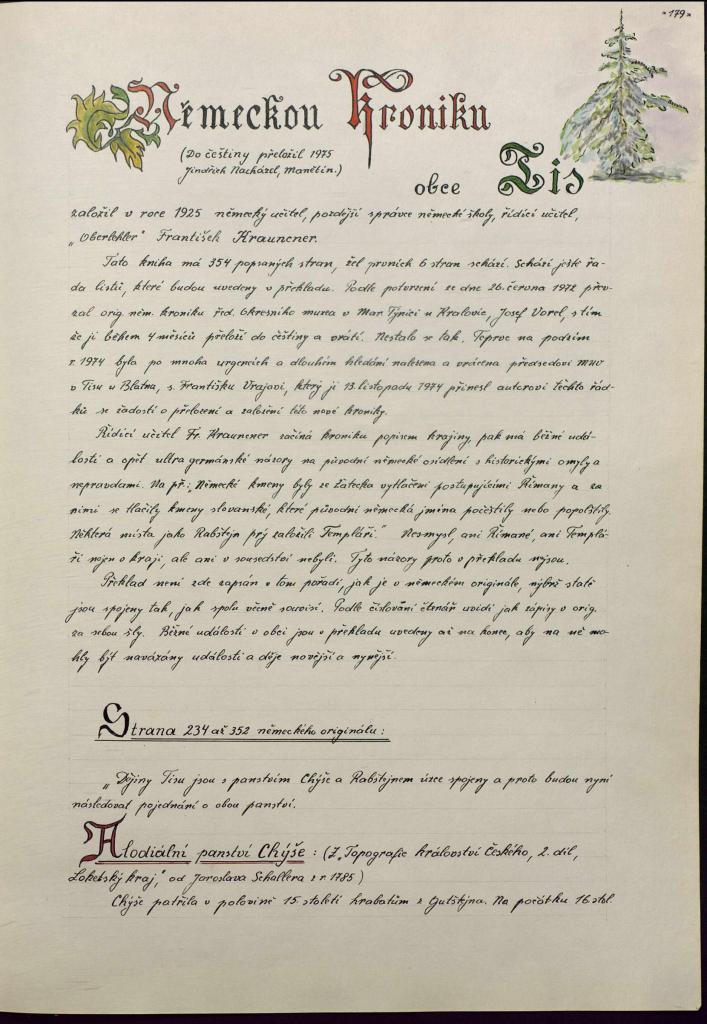 *179*
Německou Kroniku
(Do češtiny přeložil 1975
Jindřich Nacházel, Manětín.)
obce Tis
založil v roce 1925 německý učitel, pozdější správce německé školy, řídící učitel,
„Oberlehler" František Krauncner.
Tato kniha má 354 popsaných stran, žel prvních 6 stran schází. Schází ještě řa-
da listů, které budou uvedeny v překladu. Podle potvrzení ze dne 26. června 1972 přev-
zal orig. něm. kroniku řed. Okresního musea v Mar. Týnici u Kralovic, Josef Vorel, s tím
že ji během 4 měsíců přeloží do češtiny a vrátí. Nestalo se tak. Teprve na podzim
r. 1974 byla po mnoha urgencích a dlouhém hledání nalezena a vrácena předsedovi MNV
v Tisu u Blatna, s. Františku Vrajovi, který ji 13. listopadu 1974 přinesl autorovi těchto řád-
ků se žádostí o přeložení a založení této nové kroniky.
Řídící učitel Fr. Krauncner začíná kroniku popisem krajiny, pak má běžné udá-
losti a opět ultra germánské názory na původní německé osídlení s historickými omyly a
nepravdami. Na př. „Německé kmeny byly ze Žatecka vytlačeni postupujícími Římany a za
nimi se tlačily kmeny slovanské, které původní německá jména počeštily nebo popolštily.
Některá místa jako Rabštejn prý založili Templáři." Nesmysl, ani Římané, ani Templá-
ři nejen v kraji, ale ani v sousedství nebyli. Tyto názory proto v překladu nejsou.
Překlad není zde zapsán v tom pořadí, jak je v německém originále, nýbrž statě
jsou spojeny tak, jak spolu věcně souvisí. Podle číslování čtenář uvidí jak zápisy v orig.
za sebou šly. Běžné události v obci jsou v překladu uvedeny až na konce, aby na ně mo-
hly být navázány události a děje novější a nynější.
Strana 234 až 352 německého originálu:
„Dějiny Tisu jsou s panstvím Chýše a Rabštejnem úzce spojeny a proto budou nyní
následovat pojednání o obou panství.
Alodiální panství Chýše: (Z „Topografie království Českého, 2. díl,
Loketský kraj," od Jaroslava Schallera z r. 1785)
Chýše patřila v polovině 15. století hrabatům z Gutštejna. Na počátku 16. stol.